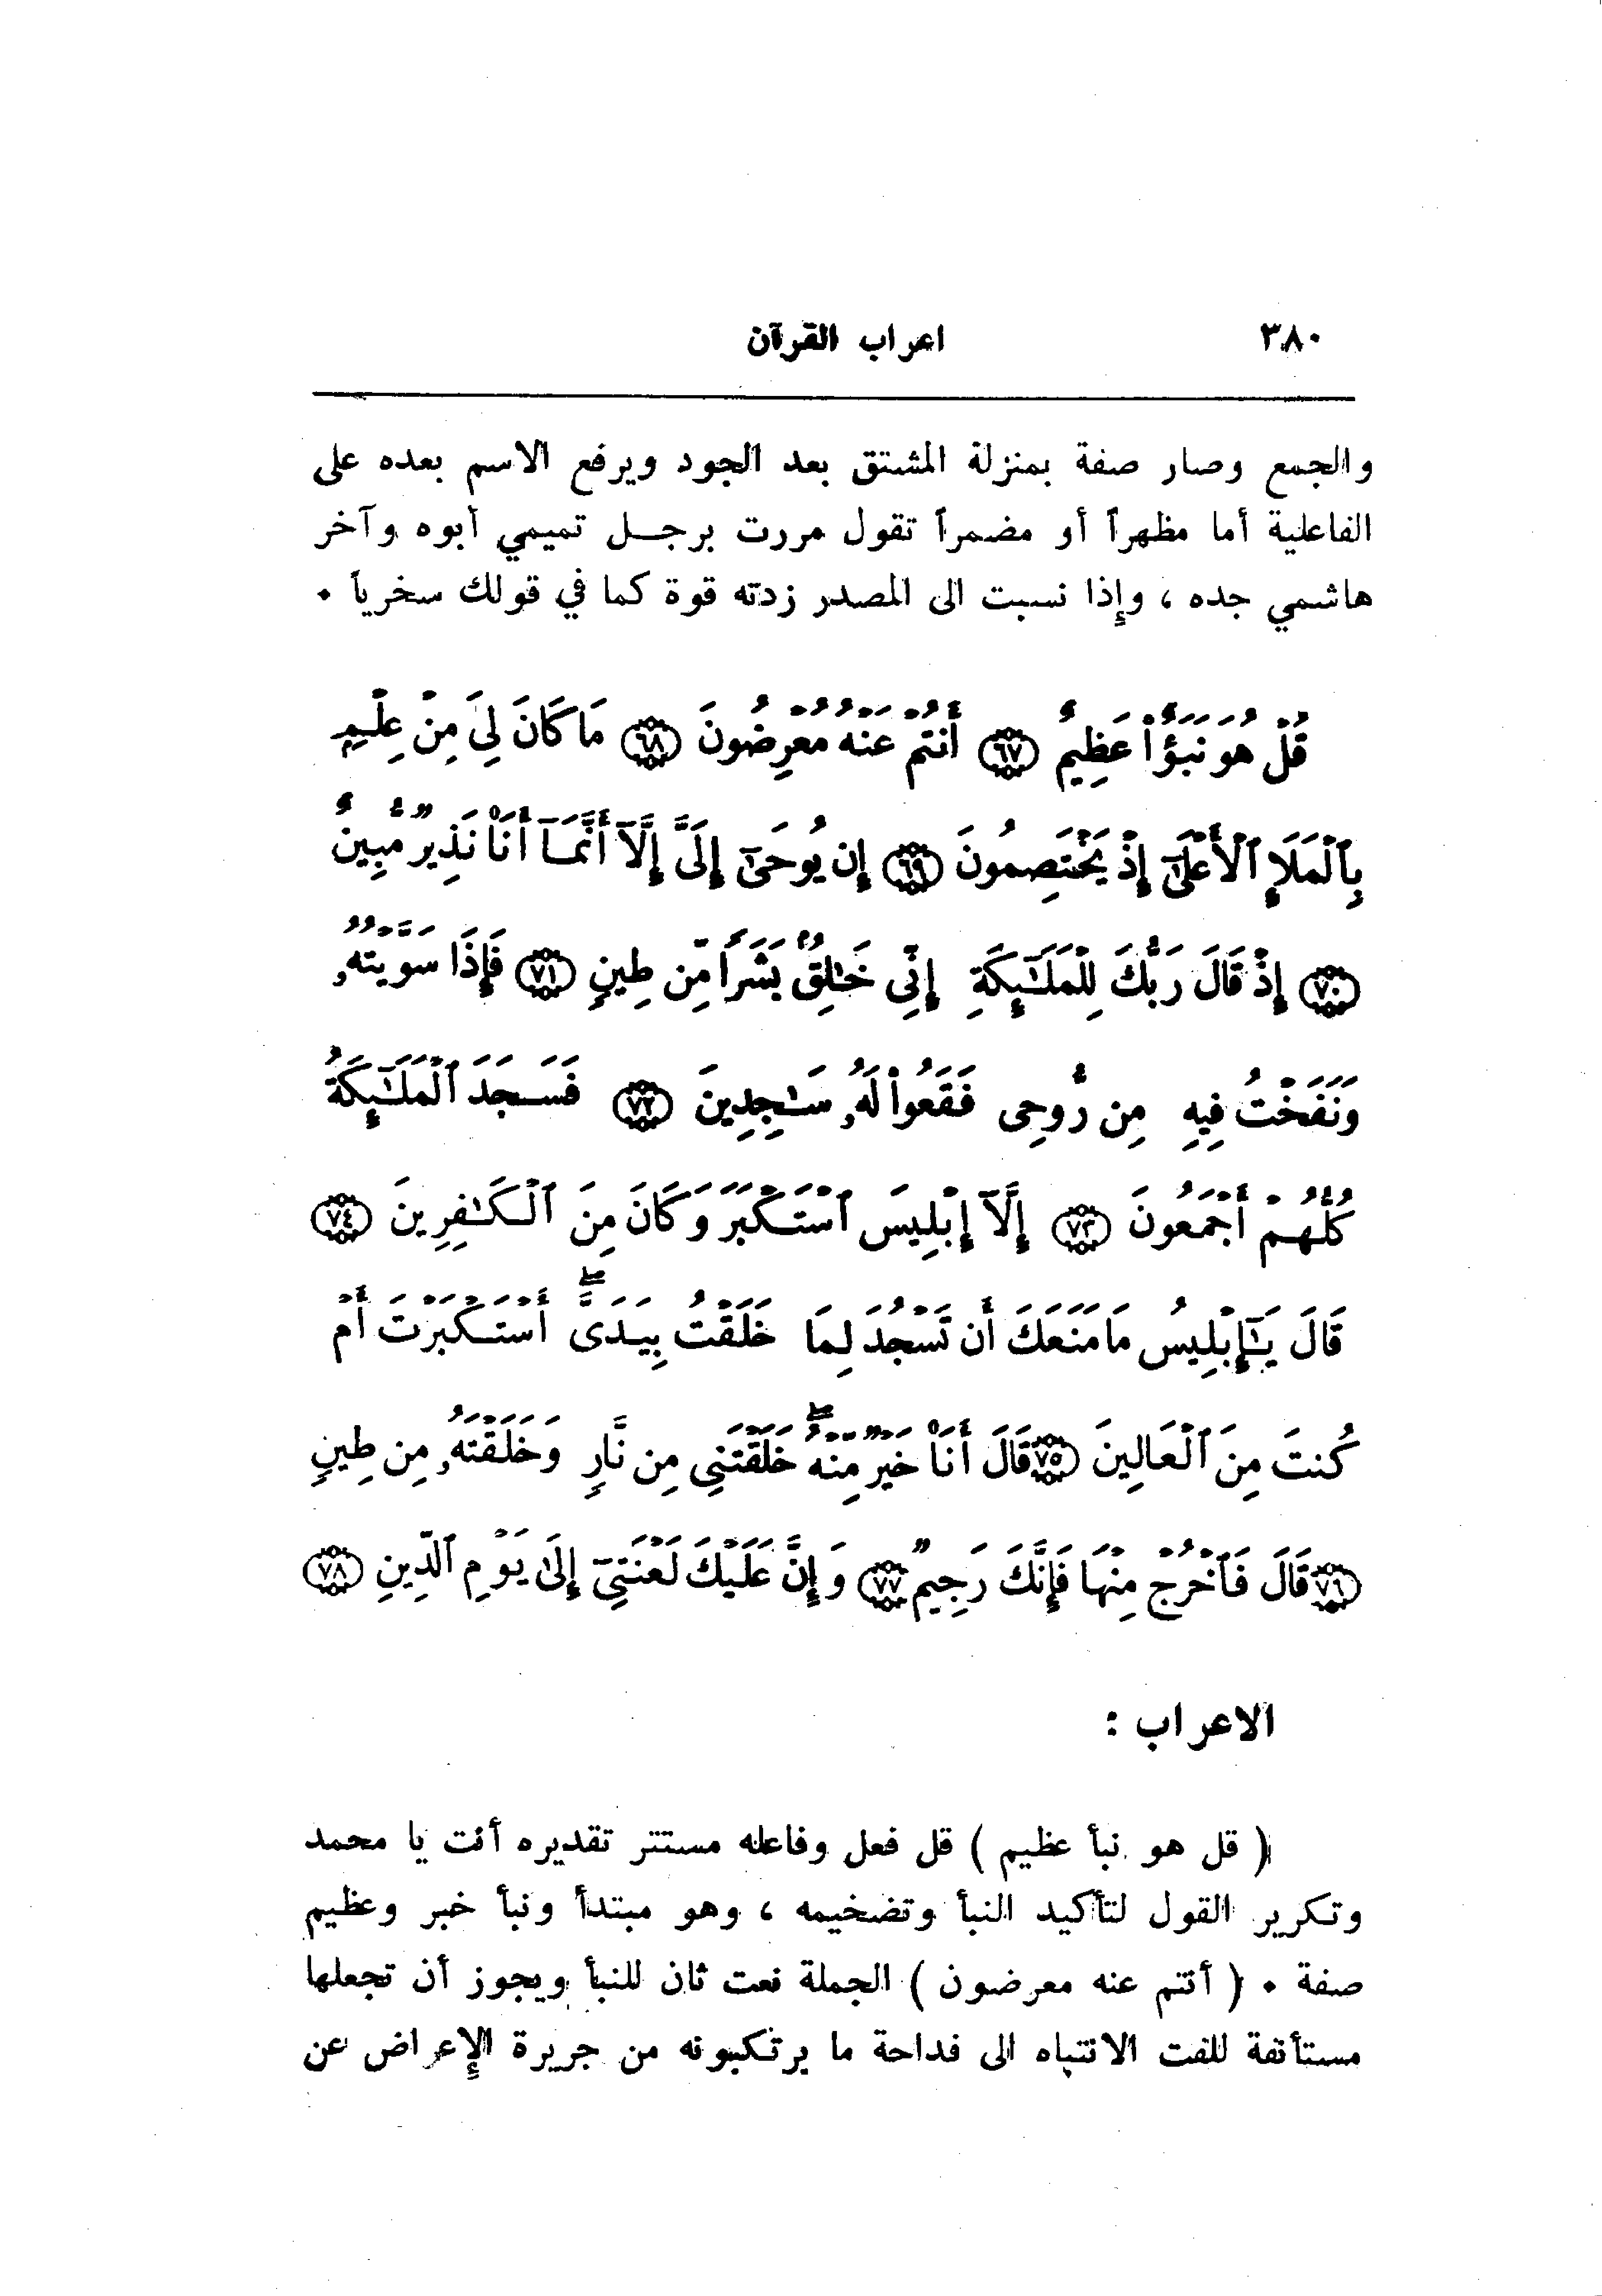 ٣٨٠ اعراب القرآن
والجمع وصار صفة بمنزلة المشتق بعد الجود ويرفع الاسم بعده على
الفاعلية أما مظهراً أو مضمراً تقول مررت برجل تميمي أبوه وآخر
هاشمي جده ، وإذا نسبت الى المصدر زدته قوة كما في قولك سخرياً ٠
قُلْ هُوَ نَبَؤٌاْ عَظِيمٌ ﴿٦٧﴾ أَنتُمْ عَنْهُ مُعْرِضُونَ ﴿٦٨﴾ مَا كَانَ لِيَ مِنْ عِلْمٍ
بِٱلْمَلَإِ ٱلْأَعْلَىٰٓ إِذْ يَخْتَصِمُونَ ﴿٦٩﴾ إِن يُوحَىٰٓ إِلَىَّ إِلَّآ أَنَّمَآ أَنَا۠ نَذِيرٌ مُّبِينٌ
﴿٧٠﴾ إِذْ قَالَ رَبُّكَ لِلْمَلَـٰٓئِكَةِ إِنِّى خَـٰلِقٌۢ بَشَرًا مِّن طِينٍ ﴿٧١﴾ فَإِذَا سَوَّيْتُهُۥ
وَنَفَخْتُ فِيهِ مِن رُّوحِى فَقَعُوا۟ لَهُۥ سَـٰجِدِينَ ﴿٧٢﴾ فَسَجَدَ ٱلْمَلَـٰٓئِكَةُ
كُلُّهُمْ أَجْمَعُونَ ﴿٧٣﴾ إِلَّآ إِبْلِيسَ ٱسْتَكْبَرَ وَكَانَ مِنَ ٱلْكَـٰفِرِينَ ﴿٧٤﴾
قَالَ يَـٰٓإِبْلِيسُ مَا مَنَعَكَ أَن تَسْجُدَ لِمَا خَلَقْتُ بِيَدَىَّ ۖ أَسْتَكْبَرْتَ أَمْ
كُنتَ مِنَ ٱلْعَالِينَ ﴿٧٥﴾ قَالَ أَنَا۠ خَيْرٌ مِّنْهُ ۖ خَلَقْتَنِى مِن نَّارٍ وَخَلَقْتَهُۥ مِن طِينٍ
﴿٧٦﴾ قَالَ فَٱخْرُجْ مِنْهَا فَإِنَّكَ رَجِيمٌ ﴿٧٧﴾ وَإِنَّ عَلَيْكَ لَعْنَتِىٓ إِلَىٰ يَوْمِ ٱلدِّينِ ﴿٧٨﴾
الاعراب :
( قل هو نبأ عظيم ) قل فعل وفاعله مستتر تقديره أنت يا محمد
وتكرير القول لتأكيد النبأ وتضخيمه ، وهو مبتدأ ونبأ خبر وعظيم
صفة ٠ ( أنتم عنه معرضون ) الجملة نعت ثان للنبأ ويجوز أن تجعلها
مستأنفة للفت الانتباه الى فداحة ما يرتكبونه من جريرة الإعراض عن